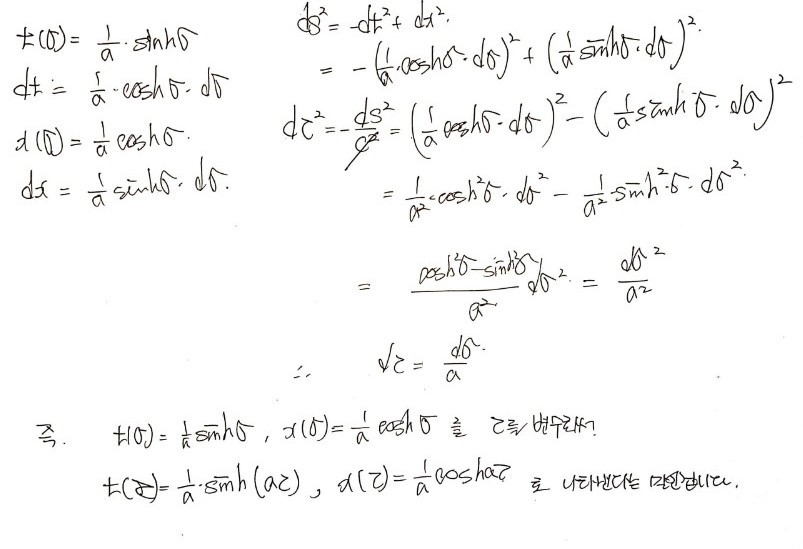 t(σ) = 1/a · sinhσ
dt = 1/a · coshσ · dσ
x(σ) = 1/a coshσ.
dx = 1/a sinhσ · dσ.
ds² = -dt² + dx².
= -(1/a · coshσ · dσ)² + (1/a sinhσ · dσ)².
dτ² = -ds²/c² = (1/a coshσ · dσ)² - (1/a sinhσ · dσ)²
= 1/a² · cosh²σ · dσ² - 1/a² · sinh²σ · dσ².
= (cosh²σ - sinh²σ)/a² dσ² = dσ²/a²
∴ dτ = dσ/a.
즉. t(σ) = 1/a sinhσ, x(σ) = 1/a coshσ 를 τ를 변수로
t(τ) = 1/a · sinh(aτ), x(τ) = 1/a coshaτ 로 나타낸다는